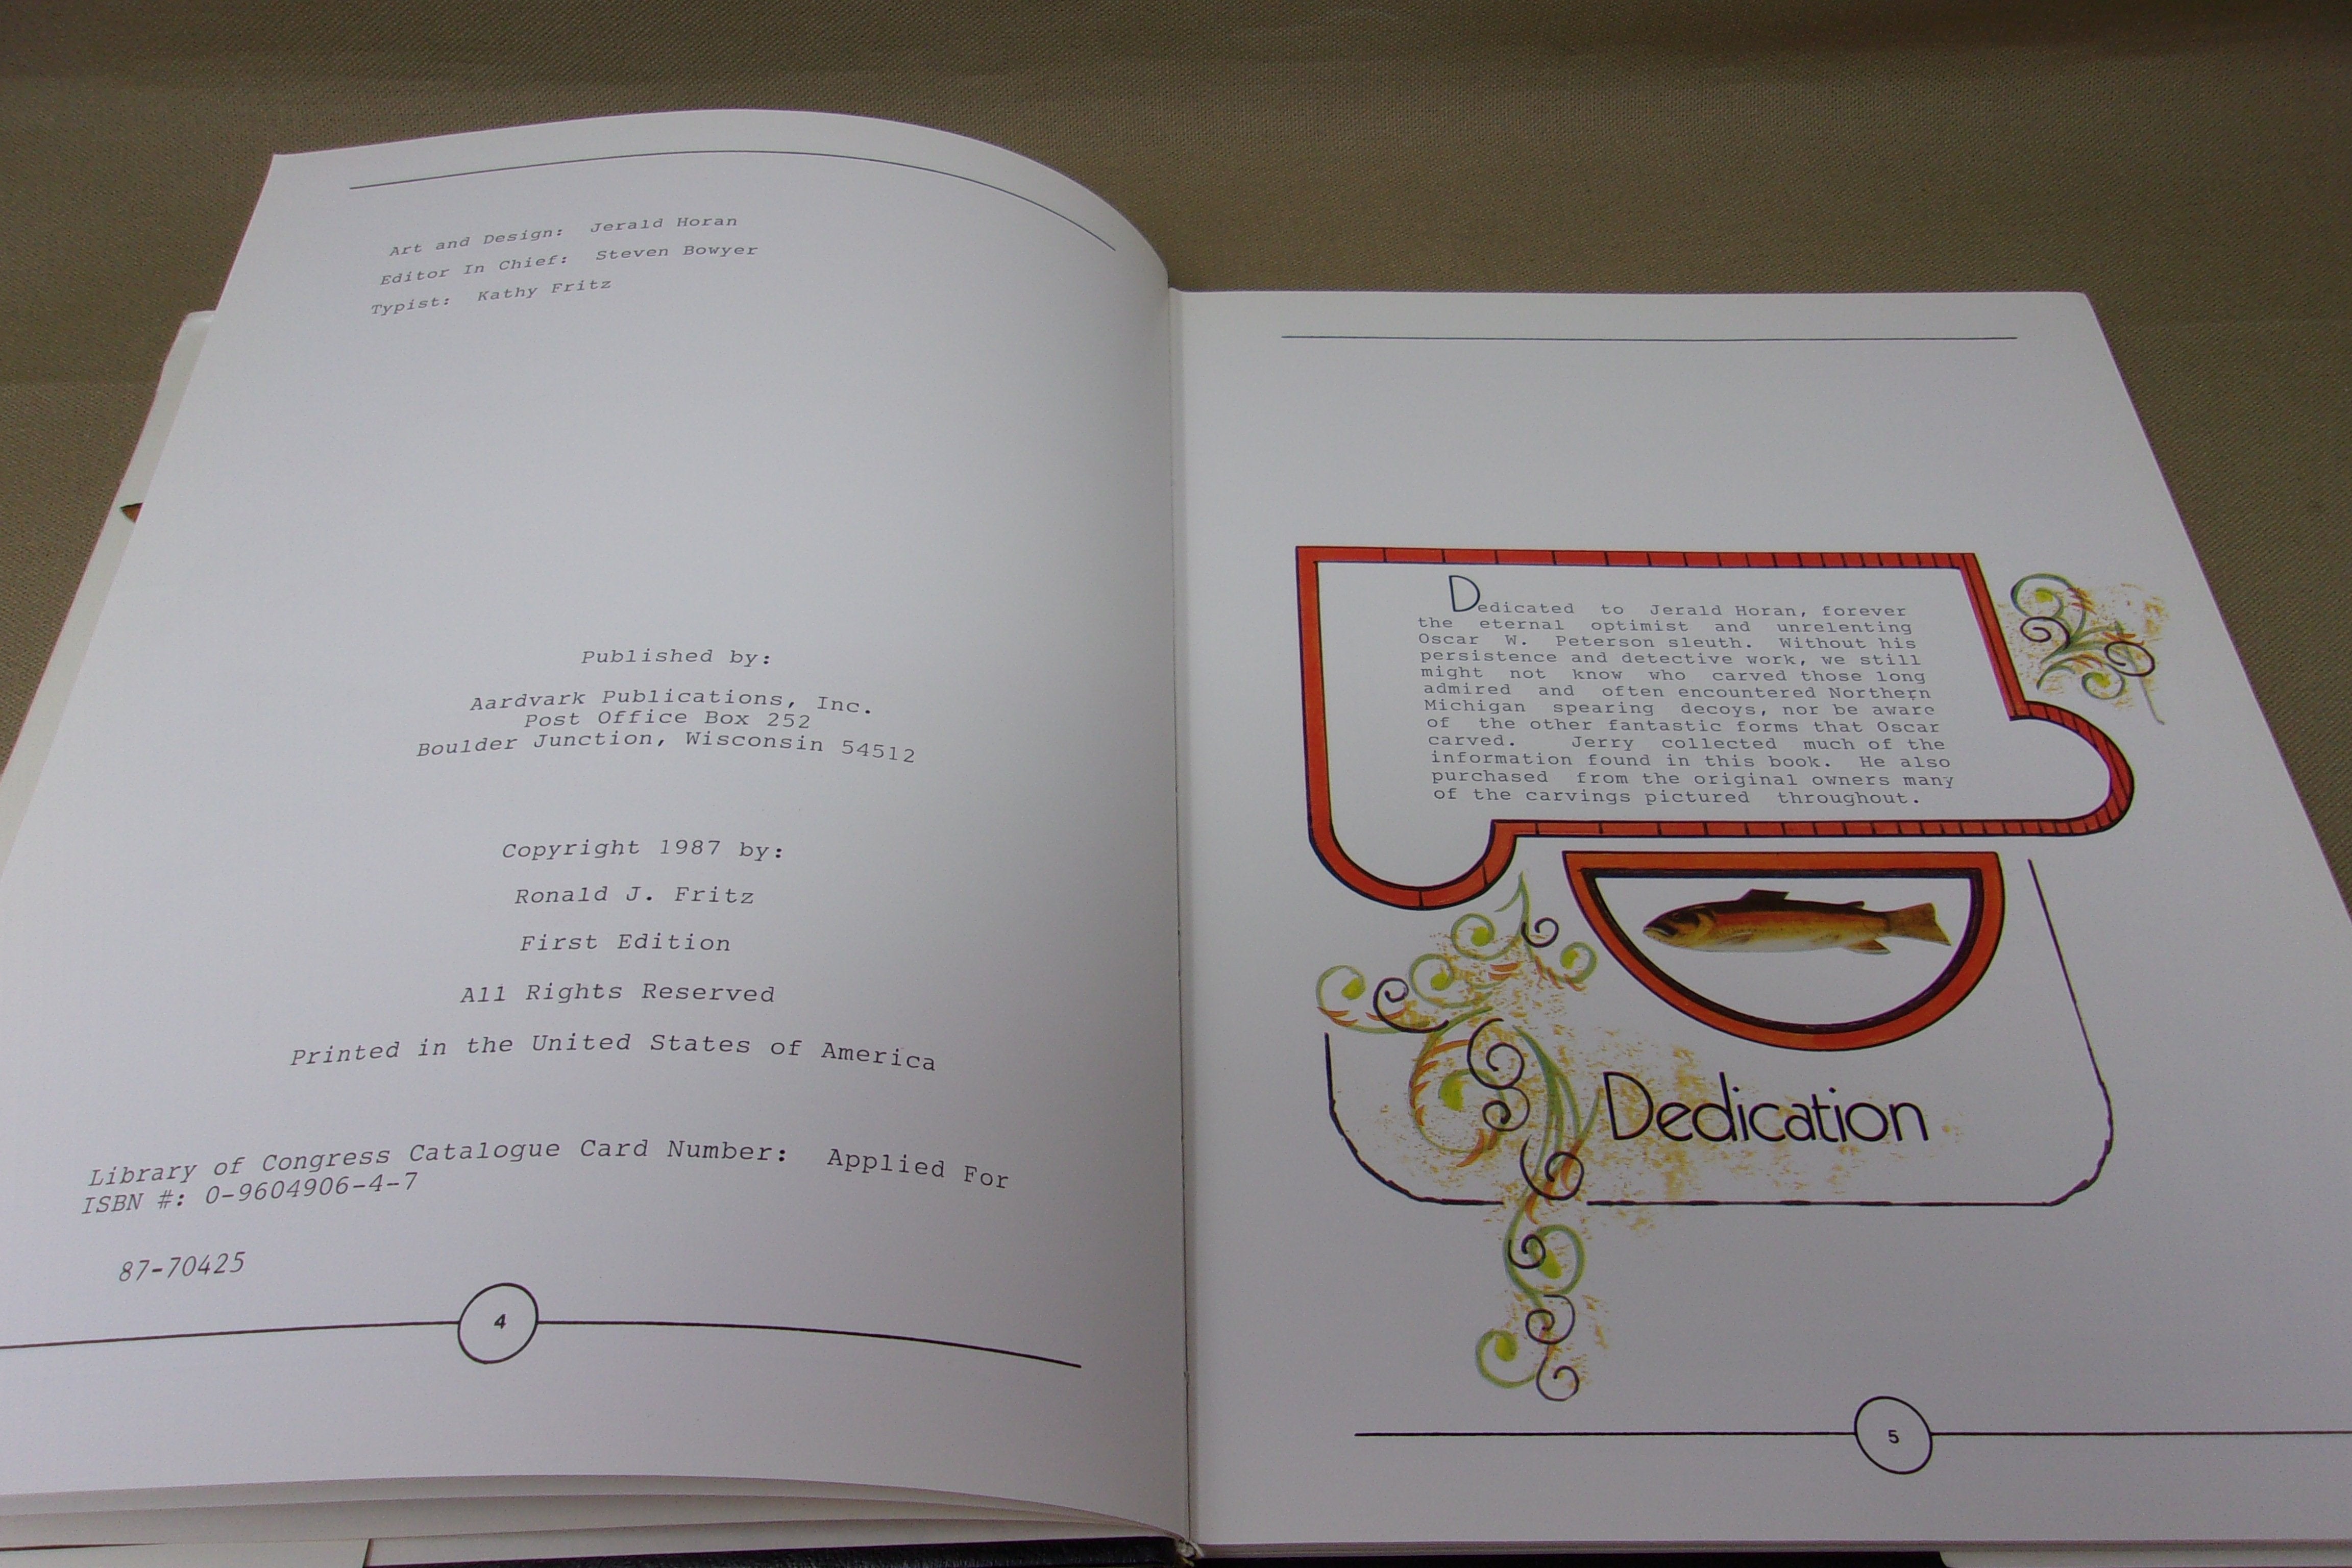 Art and Design: Jerald Horan
Editor In Chief: Steven Bowyer
Typist: Kathy Fritz
Published by:
Aardvark Publications, Inc.
Post Office Box 252
Boulder Junction, Wisconsin 54512
Copyright 1987 by:
Ronald J. Fritz
First Edition
All Rights Reserved
Printed in the United States of America
Library of Congress Catalogue Card Number: Applied For
ISBN #: 0-9604906-4-7
87-70425
4
Dedicated to Jerald Horan, forever
the eternal optimist and unrelenting
Oscar W. Peterson sleuth. Without his
persistence and detective work, we still
might not know who carved those long
admired and often encountered Northern
Michigan spearing decoys, nor be aware
of the other fantastic forms that Oscar
carved. Jerry collected much of the
information found in this book. He also
purchased from the original owners many
of the carvings pictured throughout.
Dedication
5